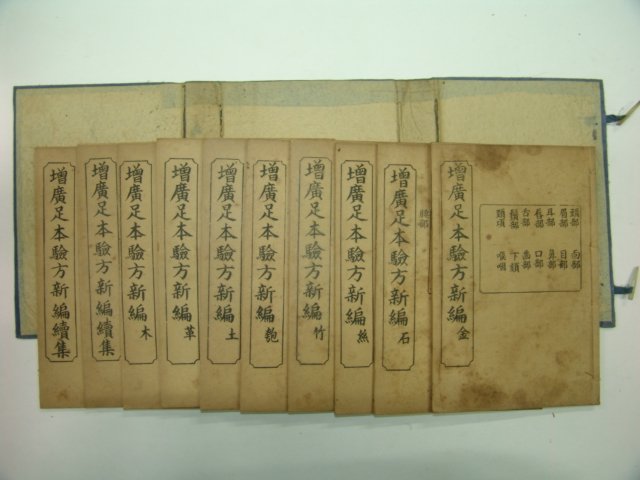 增廣足本驗方新編 金
頭部 面部
眉部 目部
耳部 鼻部
唇部 口部
舌部 齒部
鬚部 下頦
頸項 咽喉
增廣足本驗方新編 石
增廣足本驗方新編 絲
增廣足本驗方新編 竹
增廣足本驗方新編 匏
增廣足本驗方新編 土
增廣足本驗方新編 革
增廣足本驗方新編 木
增廣足本驗方新編續集
增廣足本驗方新編續集